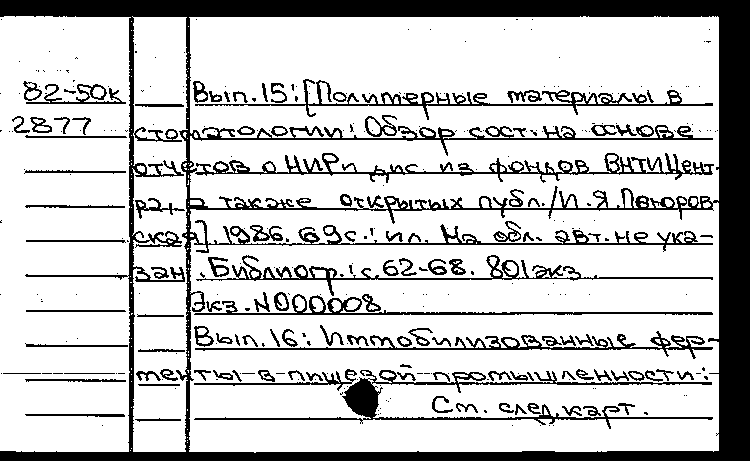 82-50к Вып.15:[Полимерные материалы в
2877 стоматологии: Обзор сост. на основе
отчетов о НИР и дис. из фондов ВНТИЦент-
ра, а также открытых публ./И.Я.
ская]. 1986. 69с.: ил. На обл. авт. не ука-
зан. Библиогр.: с. 62-68. 801экз.
Экз. N000008.
Вып.16: Иммобилизованные фер-
менты в пищевой промышленности:
См. след. карт.